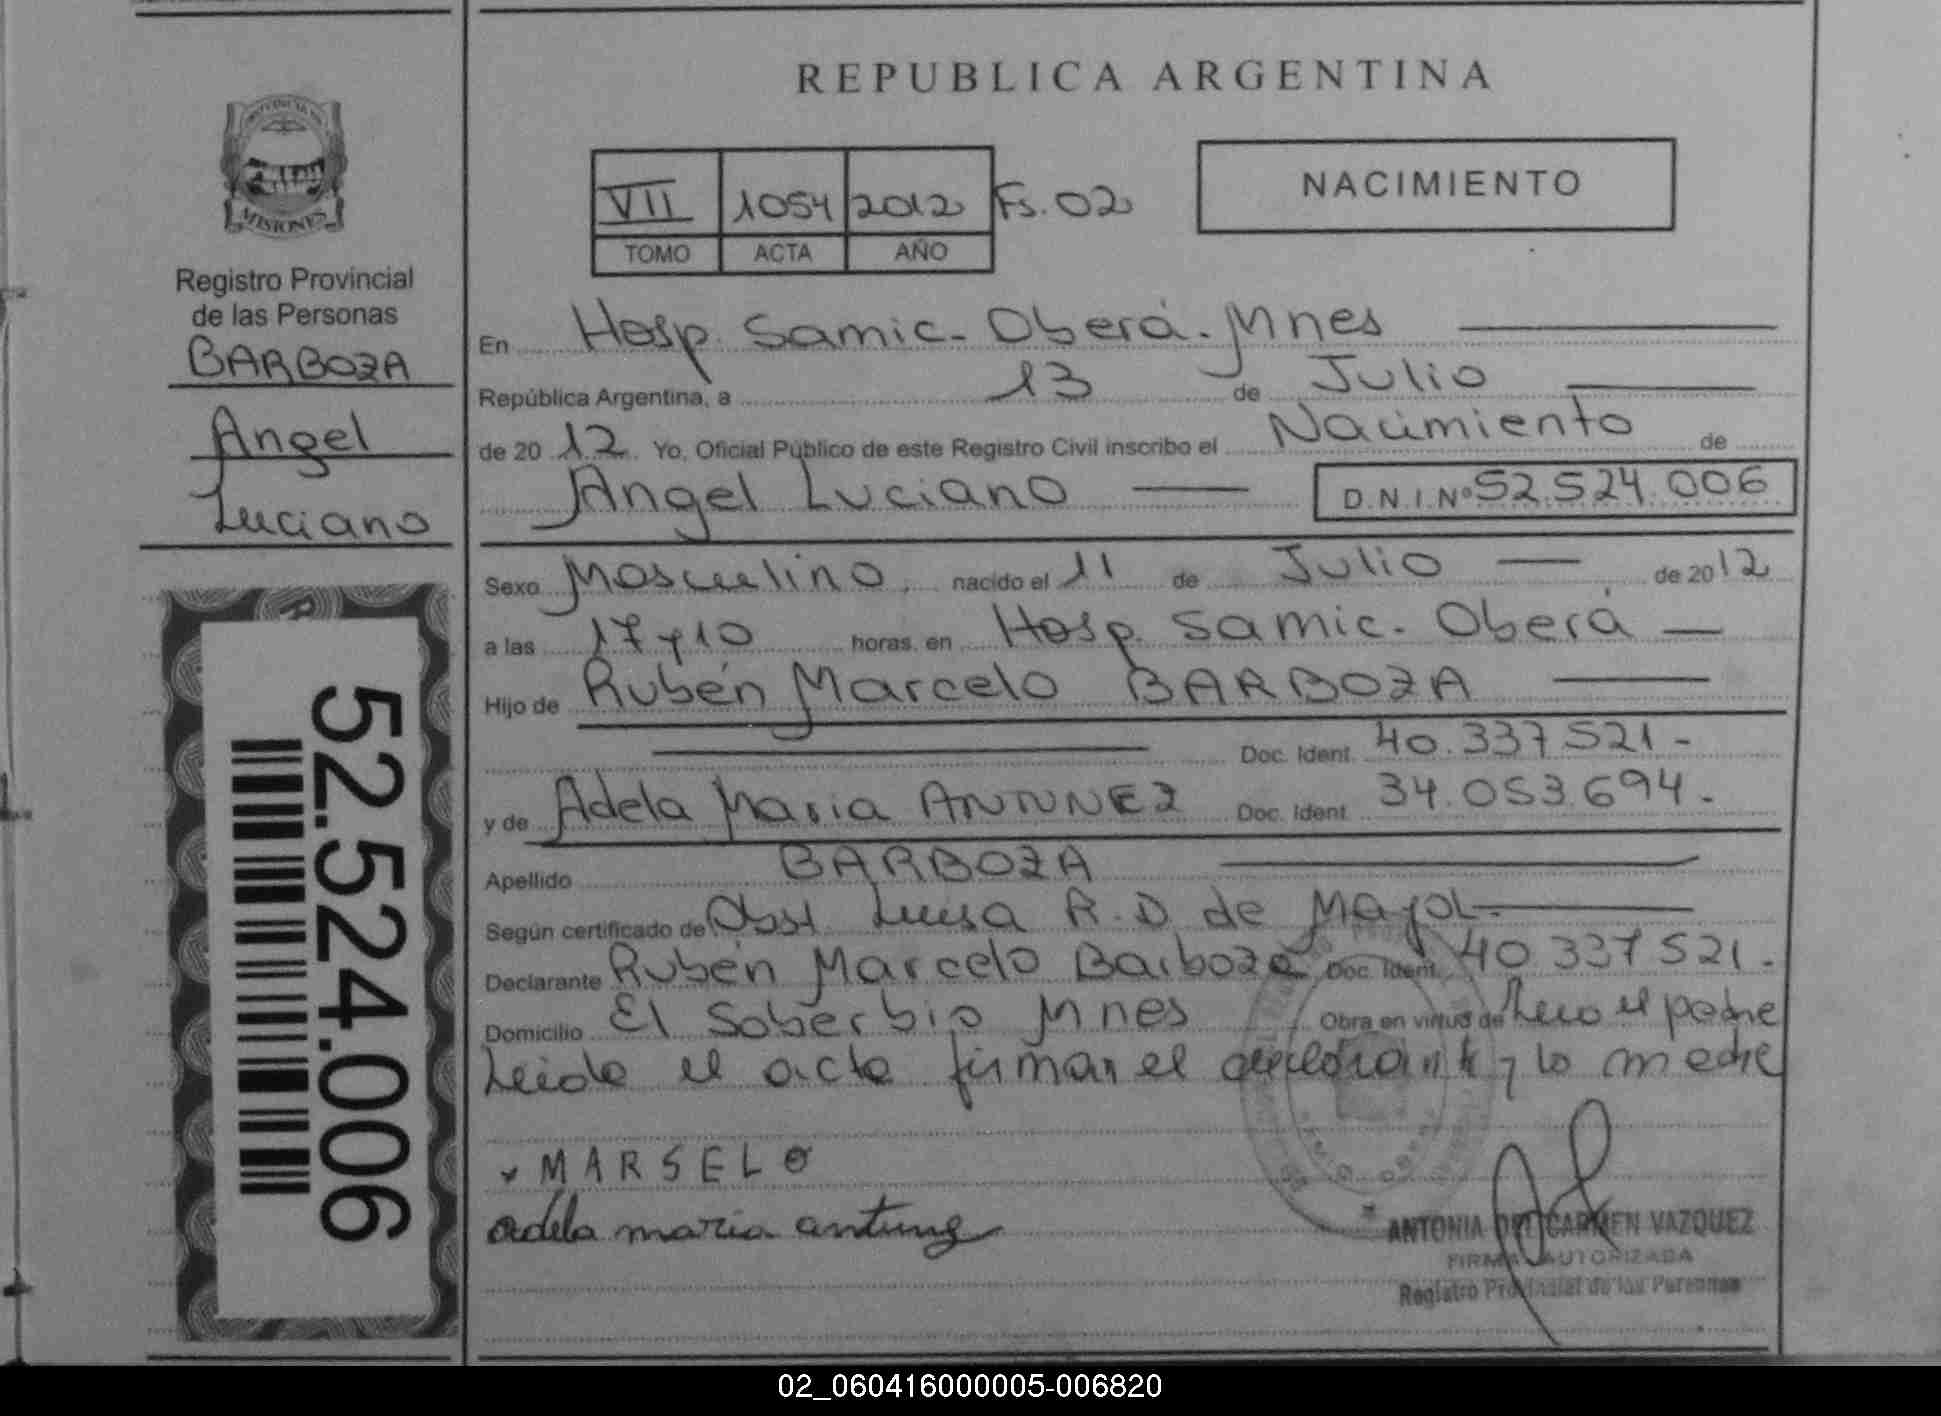 REPUBLICA ARGENTINA
MISIONES
Registro Provincial
de las Personas
BARBOZA
Angel
Luciano
52.524.006
VII 1054 2012 Fs. 02
TOMO ACTA AÑO
NACIMIENTO
En Hosp. Samic - Oberá - Mnes
República Argentina, a 13 de Julio
de 2012 Yo, Oficial Público de este Registro Civil inscribo el Nacimiento de
Angel Luciano D.N.I.Nº 52.524.006
Sexo Masculino, nacido el 11 de Julio de 2012
a las 17 y 10 horas. en Hosp. Samic. Oberá
Hijo de Rubén Marcelo BARBOZA
Doc. Ident. 40.337521-
y de Adela Maria ANTUNEZ Doc. Ident. 34.053.694-
Apellido BARBOZA
Según certificado de Obst Luisa R.D. de Mayol-
Declarante Rubén Marcelo Barboza Doc. Ident. 40 337 521.
Domicilio El Soberbio Mnes Obra en virtud de el padre
Leida el acta firman el declarante y la madre
MARSELO
adela maria
ANTONIA DEL CARMEN VAZQUEZ
FIRMA AUTORIZADA
Registro Provincial de las Personas
02_060416000005-006820